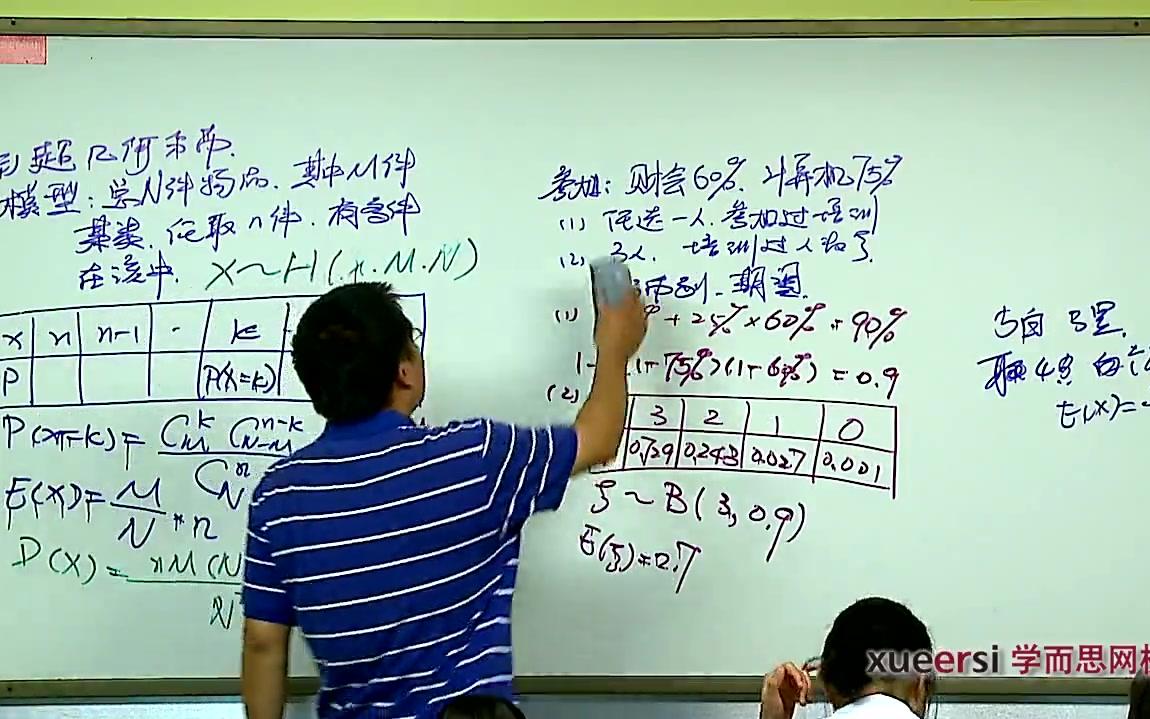 超几何分布.
模型: 共N件物品. 其中M件
某类. 任取n件. 有多件
在该中. X~H(n.M.N)
x n n-1 · k
P P(X=k)
P(X=k)= C_M^k C_{N-M}^{n-k}
C_N^n
E(X)= M/N · n
D(X)= nM(N
N
参加: 财会60%. 计算机75%
(1) 任选一人. 参加过培训
(2) 3人. 培训过人数ξ.
布列. 期望.
(1) % + 25% × 60% = 90%
1- (1-75%)(1-60%) = 0.9
(2)
3 2 1 0
0.729 0.243 0.027 0.001
ξ ~ B(3, 0.9)
E(ξ)=2.7
5白 5黑.
取4只 白
E(X)=
xueersi 学而思网校